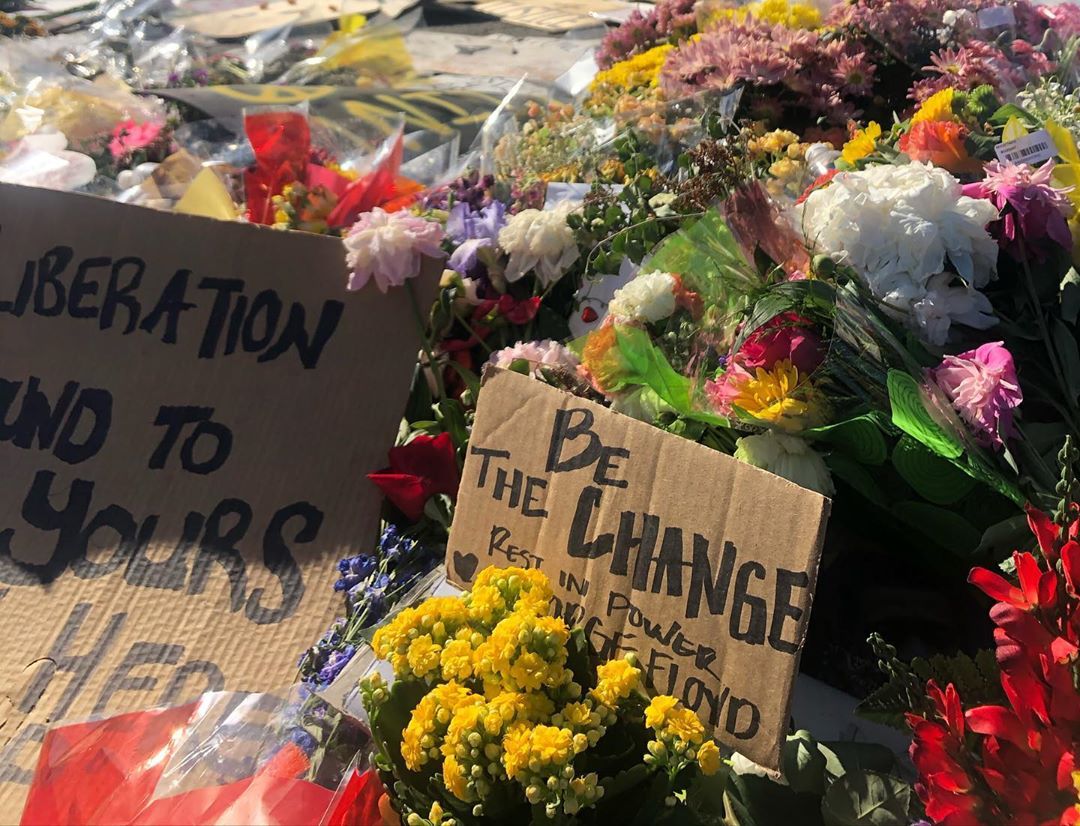 LIBERATION
OUND TO
YOURS
BE
THE CHANGE
REST IN POWER
FLOYD